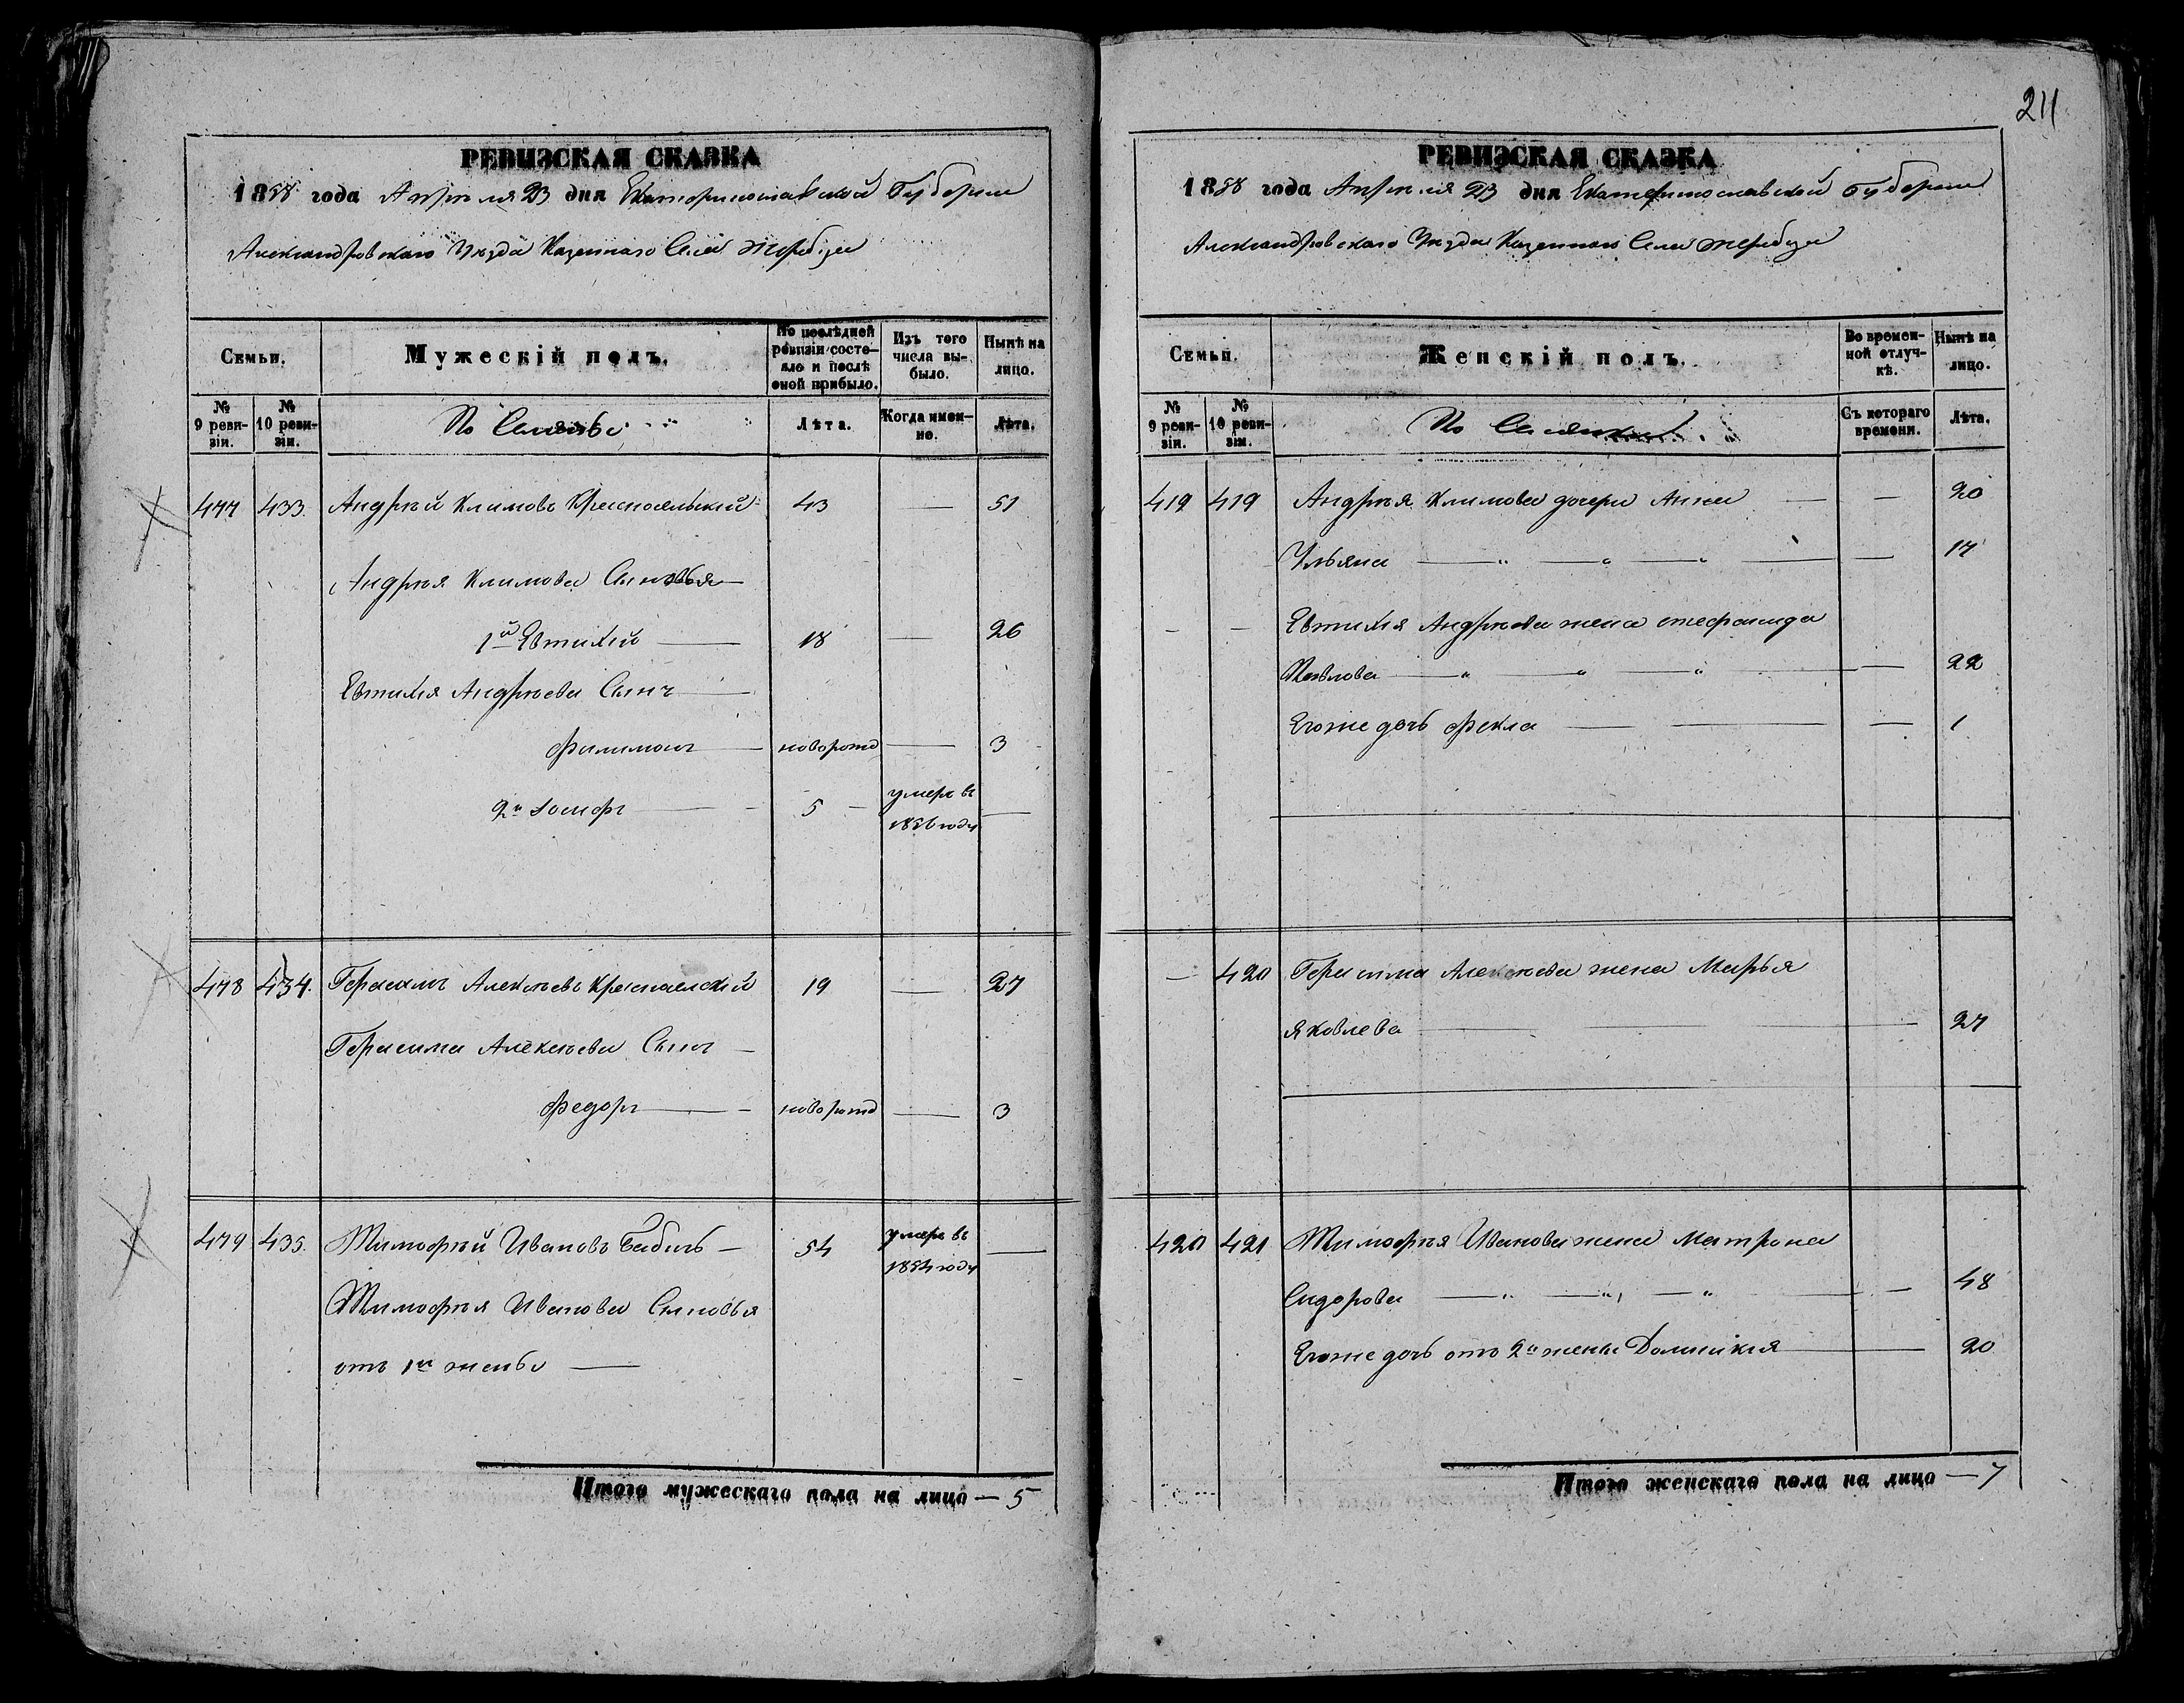 211
РЕВИЗСКАЯ СКАЗКА
1858 года Апрѣля 23 дня Екатеринославской Губернии
Александровскаго Уѣзда Казеннаго Села Жеребца
Семьи.
Мужескій полъ.
По послѣдней ревизіи состояло и послѣ оной прибыло.
Изъ того числа выбыло.
Нынѣ на лицо.
№ 9 ревизіи.
№ 10 ревизіи.
Лѣта.
Когда именно.
Лѣта.
477 433. Андрѣй Климовъ 43 — 51
Андрѣя Климова Сыновья
1й Евтихій — 18 — 26
Евтихія Андрѣева Сынъ
Филимонъ — новорожд — 3
2й Іосифъ — 5 умеръ въ —
1856 году
478 434. Герасимъ Алексѣевъ 19 — 27
Герасима Алексѣева Сынъ —
Федоръ — новорожд — 3
479 435. Тимофѣй Ивановъ Бабичъ — 54 умеръ въ —
1854 году
Тимофѣя Иванова Сыновья
отъ 1й жены —
Итого мужескаго пола на лицо — 5
РЕВИЗСКАЯ СКАЗКА
1858 года Апрѣля 23 дня Екатеринославской Губернии
Александровскаго Уѣзда Казеннаго Села Жеребца
Семьи.
Женскій полъ.
Во временной отлучкѣ.
Нынѣ на лицо.
№ 9 ревизіи.
№ 10 ревизіи.
Съ котораго времени.
Лѣта.
419 419 Андрѣя Климова дочери Анна — — 20
Ульяна — " — " — " — — 17
— — Евтихія Андрѣева жена Стефанида
Павлова — " — " — " — — 22
Его же дочь Фекла — — — 1
— 420 Герасима Алексѣева жена Марья
Яковлева — — 27
420 421 Тимофѣя Иванова жена Матрона
Сидорова — " — " — " — — 48
Его же дочь отъ 2й жены Домникія — 20
Итого женскаго пола на лицо — 7